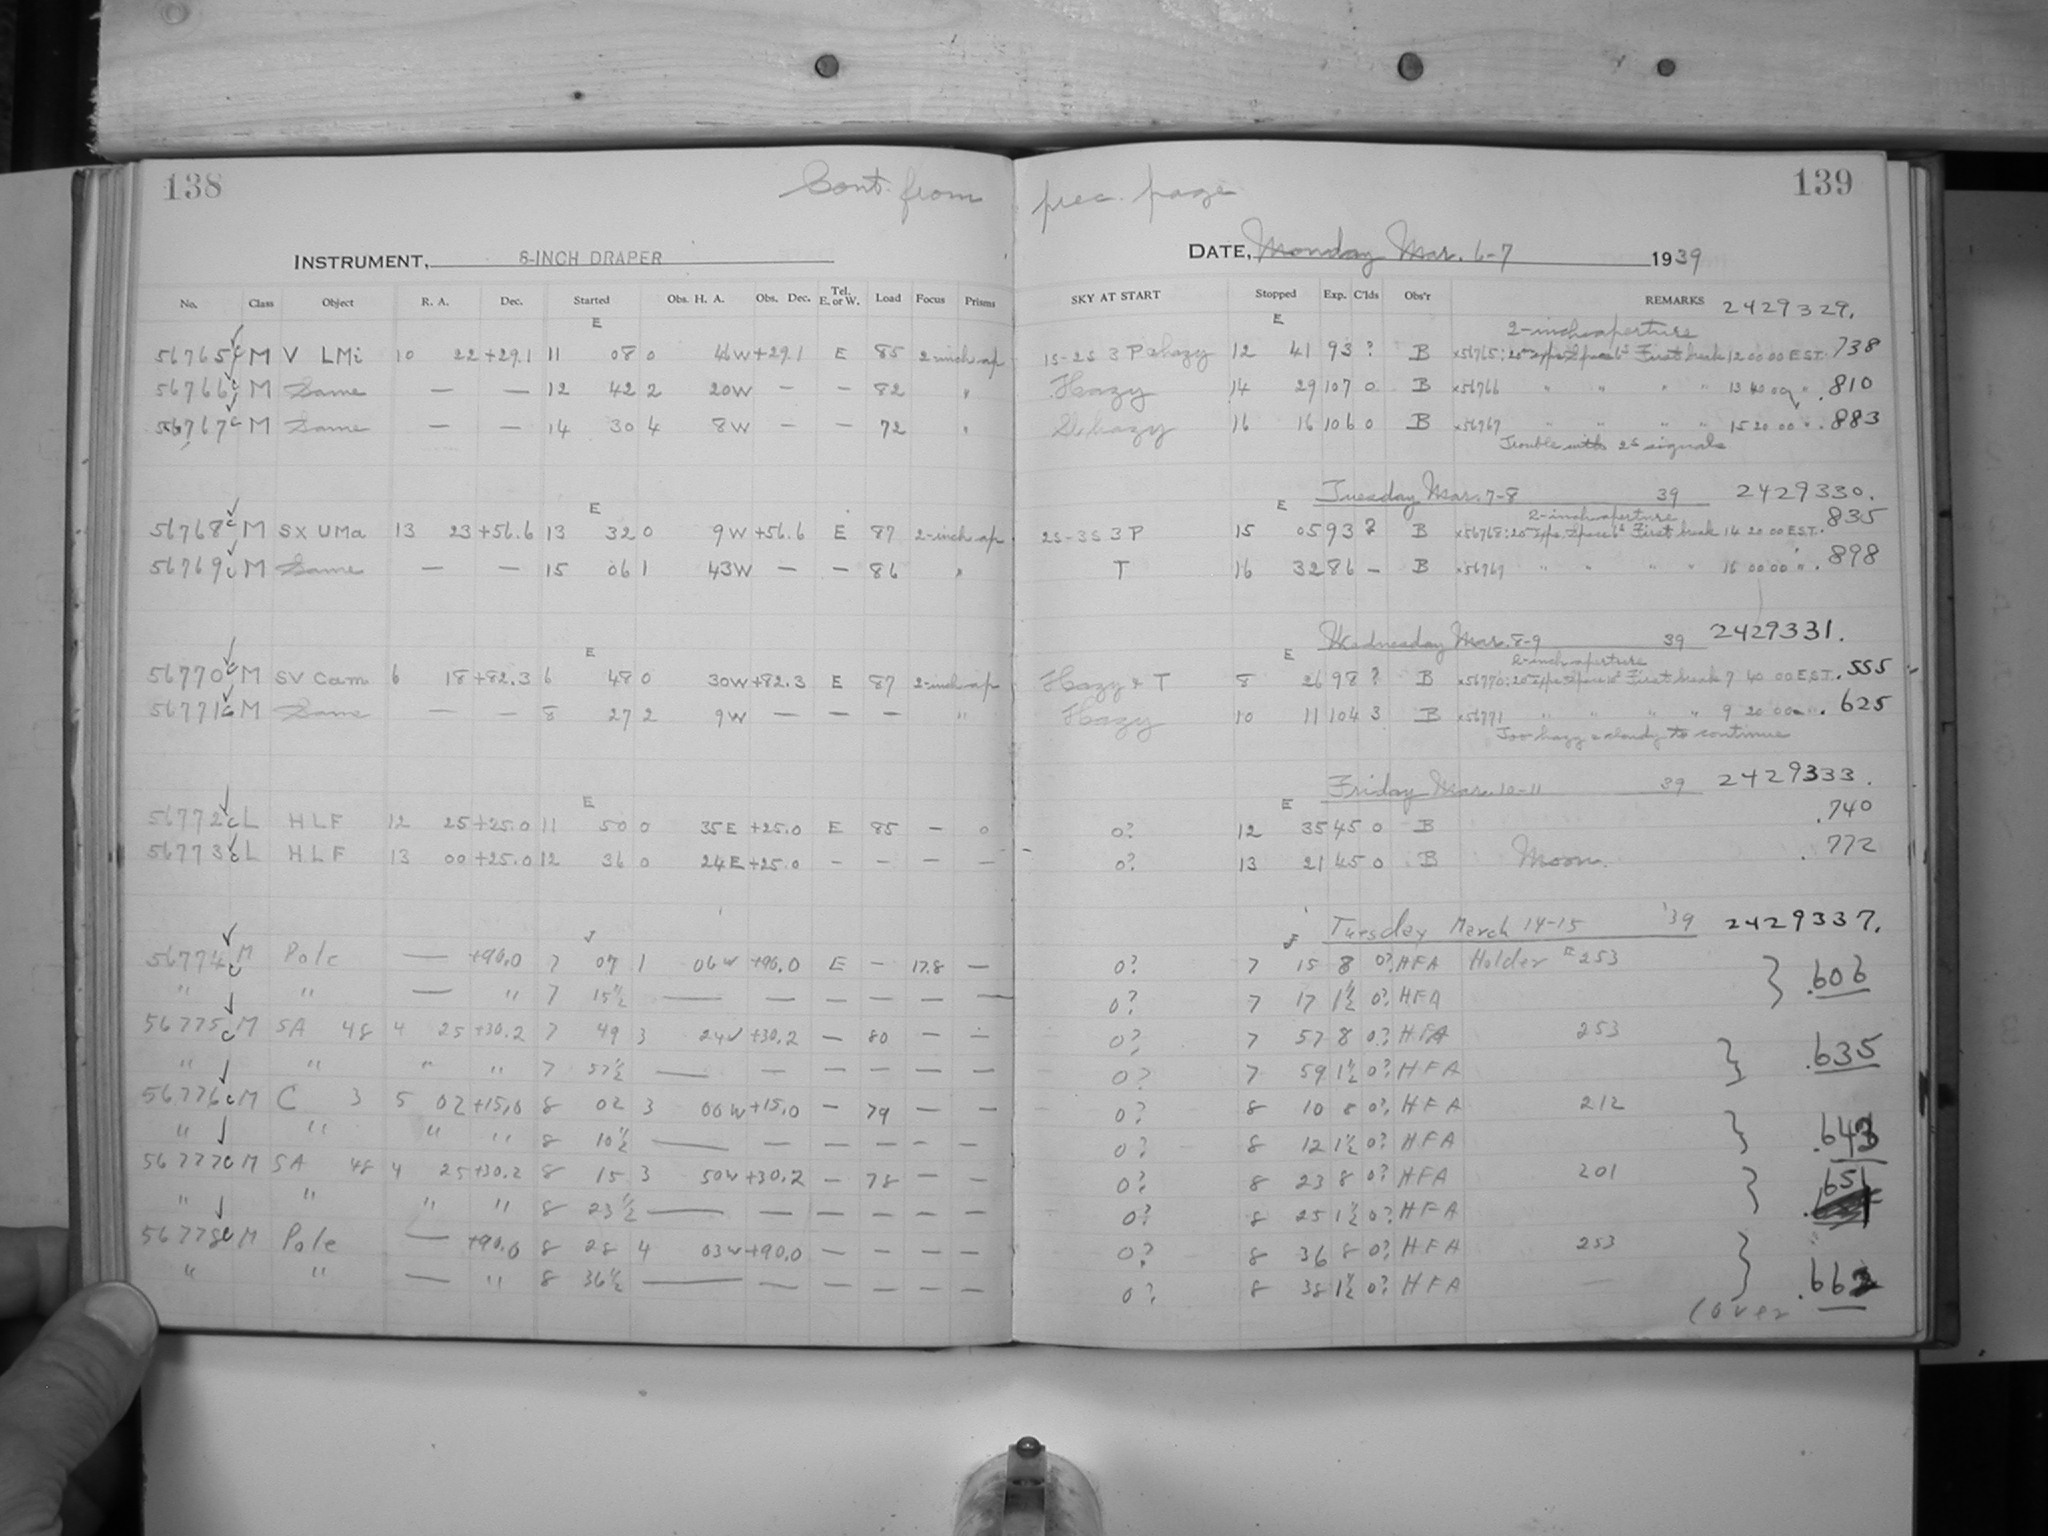 138 Cont. from prec. page 139
INSTRUMENT, 8-INCH DRAPER DATE, Monday Mar. 6-7 1939
No. Class Object R. A. Dec. Started Obs. H. A. Obs. Dec. Tel. E. or W. Load Focus Prisms SKY AT START Stopped Exp. C'lds Obs'r REMARKS 2429329.
E E 2-inch aperture
56765 M V LMi 10 22 +29.1 11 08 0 46W +29.1 E 85 2-inch ap 1S-2S 3 P hazy 12 41 93 ? B x56765: 20 Expo. Space 6s First break 12 00 00 EST. .738
56766 M Same — — 12 42 2 20W — — 82 " Hazy 14 29 107 0 B x56766 " " " " 13 40 00 " .810
56767 M Same — — 14 30 4 8W — — 72 " Sl. hazy 16 16 106 0 B x56767 " " " " 15 20 00 " .883
Trouble with 2s signals
Tuesday Mar. 7-8 39 2429330.
E E 2-inch aperture .835
56768 M SX UMa 13 23 +56.6 13 32 0 9W +56.6 E 87 2-inch ap 2S-3S 3 P 15 05 93 ? B x56768: 20 Expo. Space 6s First break 14 20 00 EST.
56769 M Same — — 15 06 1 43W — — 86 " T 16 32 86 — B x56769 " " " " 16 00 00 " .898
Wednesday Mar. 8-9 39 2429331.
E E 2-inch aperture
56770 M SV Cam 6 18 +82.3 6 48 0 30W +82.3 E 87 2-inch ap Hazy & T 8 26 98 ? B x56770: 20 Expo. Space First break 7 40 00 EST. .555
56771 M Same — — 8 27 2 9W — — — " Hazy 10 11 104 3 B x56771 " " " " 9 20 00 " .625
Too hazy & cloudy to continue
Friday Mar. 10-11 39 2429333.
E E .740
56772 L HLF 12 25 +25.0 11 50 0 35E +25.0 E 85 — 0 0? 12 35 45 0 B
56773 L HLF 13 00 +25.0 12 36 0 24E +25.0 — — — — 0? 13 21 45 0 B Moon. .772
Tuesday March 14-15 '39 2429337.
56774 M Pole — +90.0 7 07 1 06W +90.0 E — 17.8 — 0? 7 15 8 0? HFA Holder #253 } .606
" " — " 7 15½ — — — — — — 0? 7 17 1½ 0? HFA
56775 M SA 48 4 25 +30.2 7 49 3 24W +30.2 — 80 — — 0? 7 57 8 0? HFA 253
" " " " 7 57½ — — — — — — 0? 7 59 1½ 0? HFA } .635
56776 M C 3 5 02 +15.0 8 02 3 00W +15.0 — 79 — — 0? 8 10 8 0? HFA 212
" " " " 8 10½ — — — — — — 0? 8 12 1½ 0? HFA } .643
56777 M SA 48 4 25 +30.2 8 15 3 50W +30.2 — 78 — — 0? 8 23 8 0? HFA 201 } .651
" " " " 8 23½ — — — — — — 0? 8 25 1½ 0? HFA
56778 M Pole — +90.0 8 28 4 03W +90.0 — — — — 0? 8 36 8 0? HFA 253
" " — " 8 36½ — — — — — — 0? 8 38 1½ 0? HFA — } .662
(over